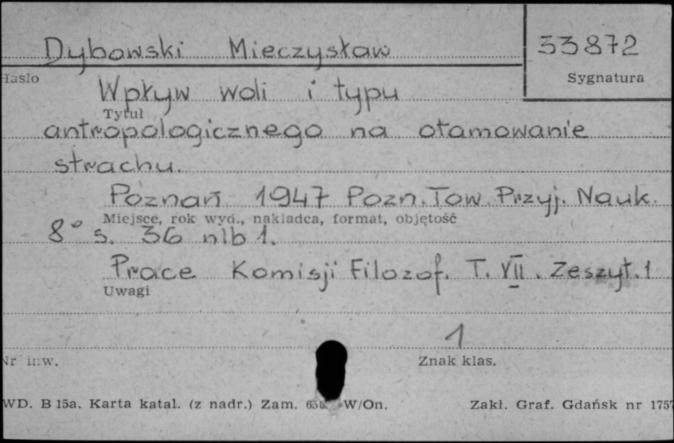 Dybowski Mieczysław 33872
Hasło Sygnatura
Wpływ woli i typu
Tytuł
antropologicznego na otamowanie
strachu.
Poznań 1947 Pozn. Tow. Przyj. Nauk.
Miejsce, rok wyd., nakładca, format, objętość
8° s. 36 nlb 1.
Prace Komisji Filozof. T. VII. Zeszyt. 1
Uwagi
1
Nr inw. Znak klas.
WD. B 15a. Karta katal. (z nadr.) Zam. W/On. Zakł. Graf. Gdańsk nr 1757